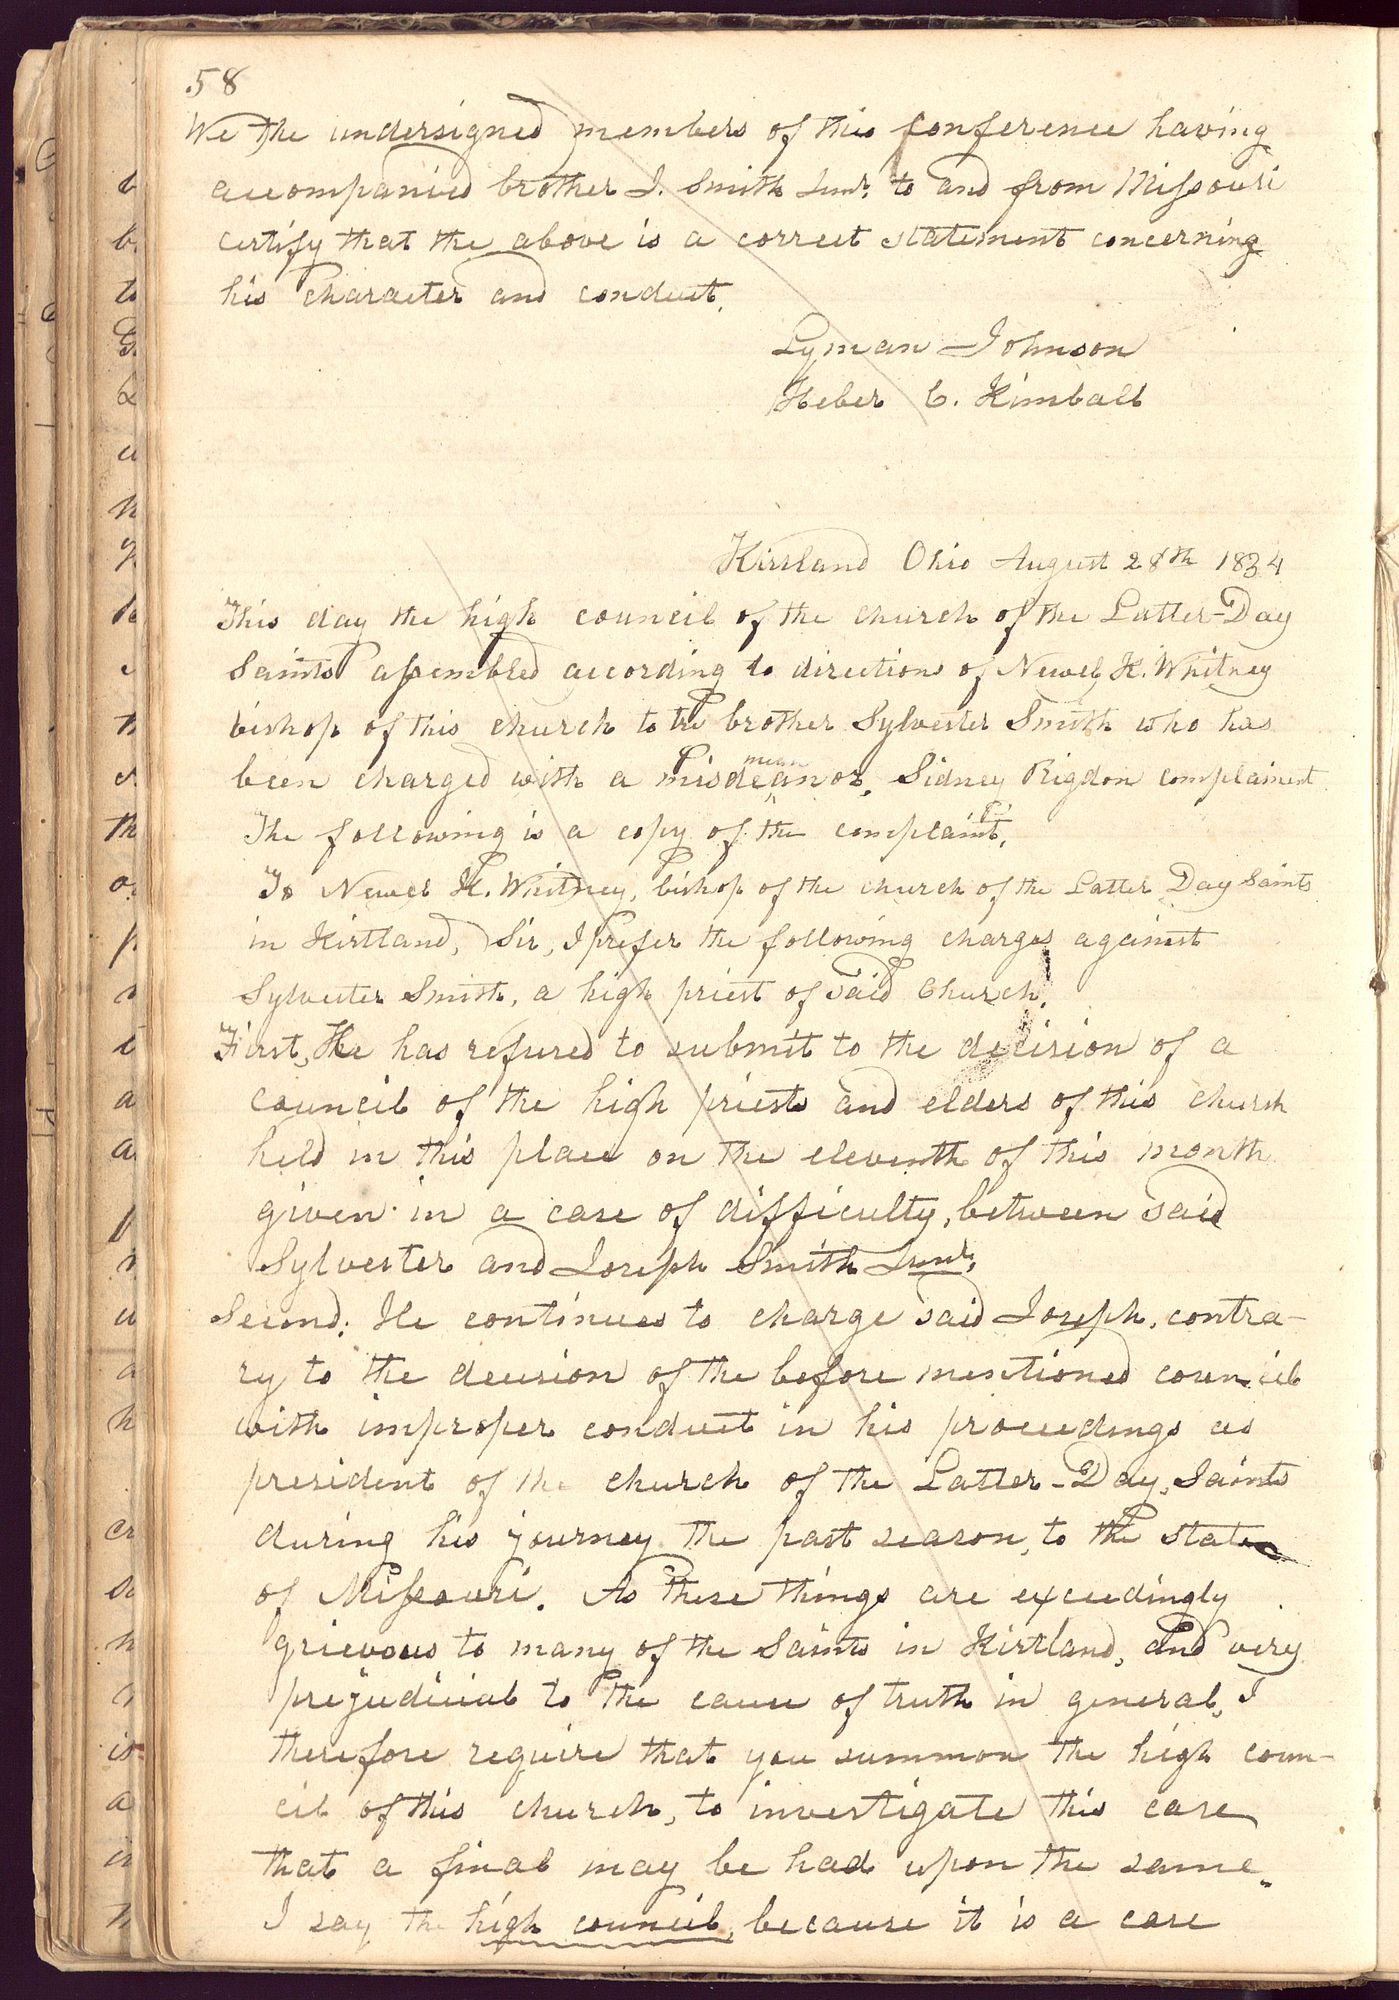 58
We the undersigned members of this conference having
accompanied brother J. Smith Junr. to and from Missouri
certify that the above is a correct statement concerning
his character and conduct.
Lyman Johnson
Heber C. Kimball
Kirtland Ohio August 28th 1834
This day the high council of the church of the Latter-Day
Saints assembled according to directions of Newel K. Whitney
bishop of this church to try brother Sylvester Smith who has
been charged with a misdemeanor, Sidney Rigdon complainent
The following is a copy of the complaint.
To Newel K. Whitney, bishop of the church of the Latter Day Saints
in Kirtland, Sir, I prefer the following charges against
Sylvester Smith, a high priest of said Church.
First, He has refused to submit to the decision of a
council of the high priests and elders of this church
held in this place on the eleventh of this month
given in a case of difficulty, between said
Sylvester and Joseph Smith Junr.
Second. He continues to charge said Joseph, contra-
ry to the decision of the before mentioned council
with improper conduct in his proceedings as
president of the church of the Latter-Day Saints
during his journey the past season, to the state
of Missouri. As these things are exceedingly
grievous to many of the Saints in Kirtland, and very
prejudicial to the cause of truth in general, I
therefore require that you summon the high coun-
cil of this church, to investigate this case
that a final may be had upon the same.
I say the high council, because it is a case